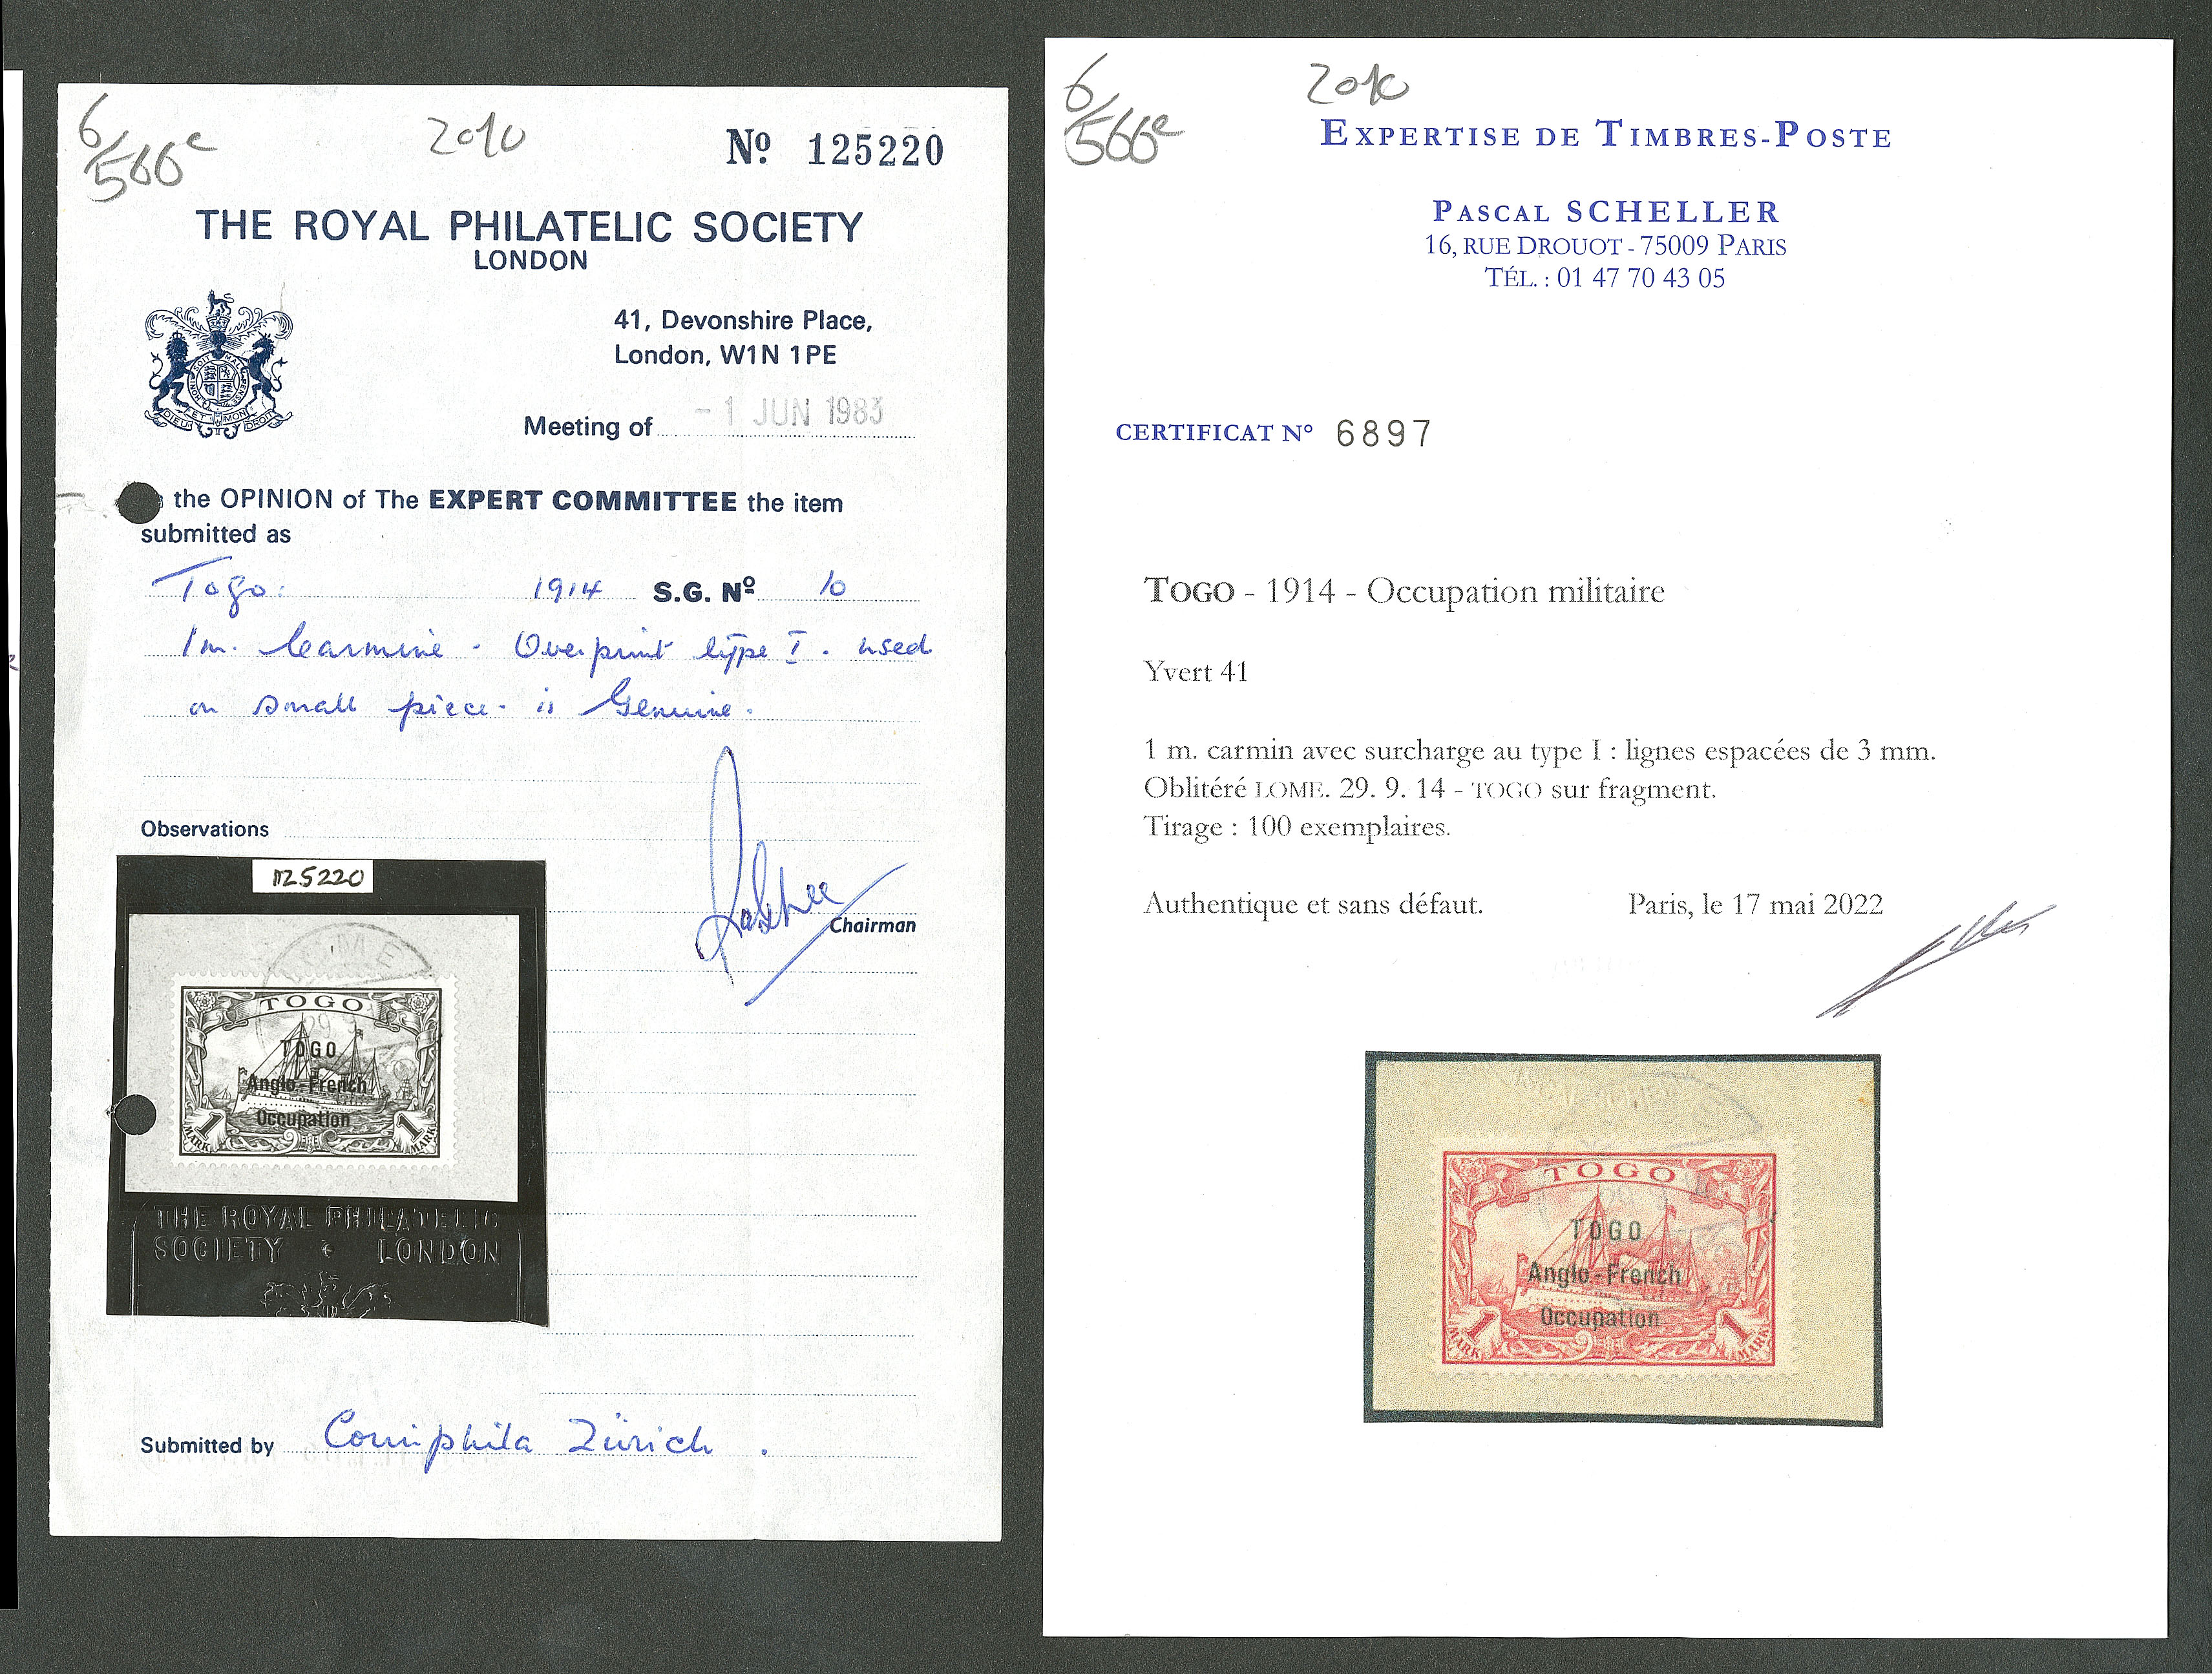 6/500e
2010
Nº 125220
THE ROYAL PHILATELIC SOCIETY
LONDON
41, Devonshire Place,
London, W1N 1PE
DIEU ET MON DROIT
Meeting of - 1 JUN 1983
the OPINION of The EXPERT COMMITTEE the item
submitted as
Togo: 1914 S.G. Nº 10
1m. Carmine - Overprint type I. used
on small piece - is Genuine.
Observations
Chairman
125220
LOME
TOGO
29
TOGO
Anglo-French
Occupation
1 MARK 1 MARK
THE ROYAL PHILATELIC
SOCIETY LONDON
Submitted by Corinphila Zürich.
6/500e
2010
EXPERTISE DE TIMBRES-POSTE
PASCAL SCHELLER
16, RUE DROUOT - 75009 PARIS
TÉL. : 01 47 70 43 05
CERTIFICAT N° 6897
TOGO - 1914 - Occupation militaire
Yvert 41
1 m. carmin avec surcharge au type I : lignes espacées de 3 mm.
Oblitéré LOME. 29. 9. 14 - TOGO sur fragment.
Tirage : 100 exemplaires.
Authentique et sans défaut. Paris, le 17 mai 2022
TOGO
TOGO
Anglo-French
Occupation
1 MARK 1 MARK